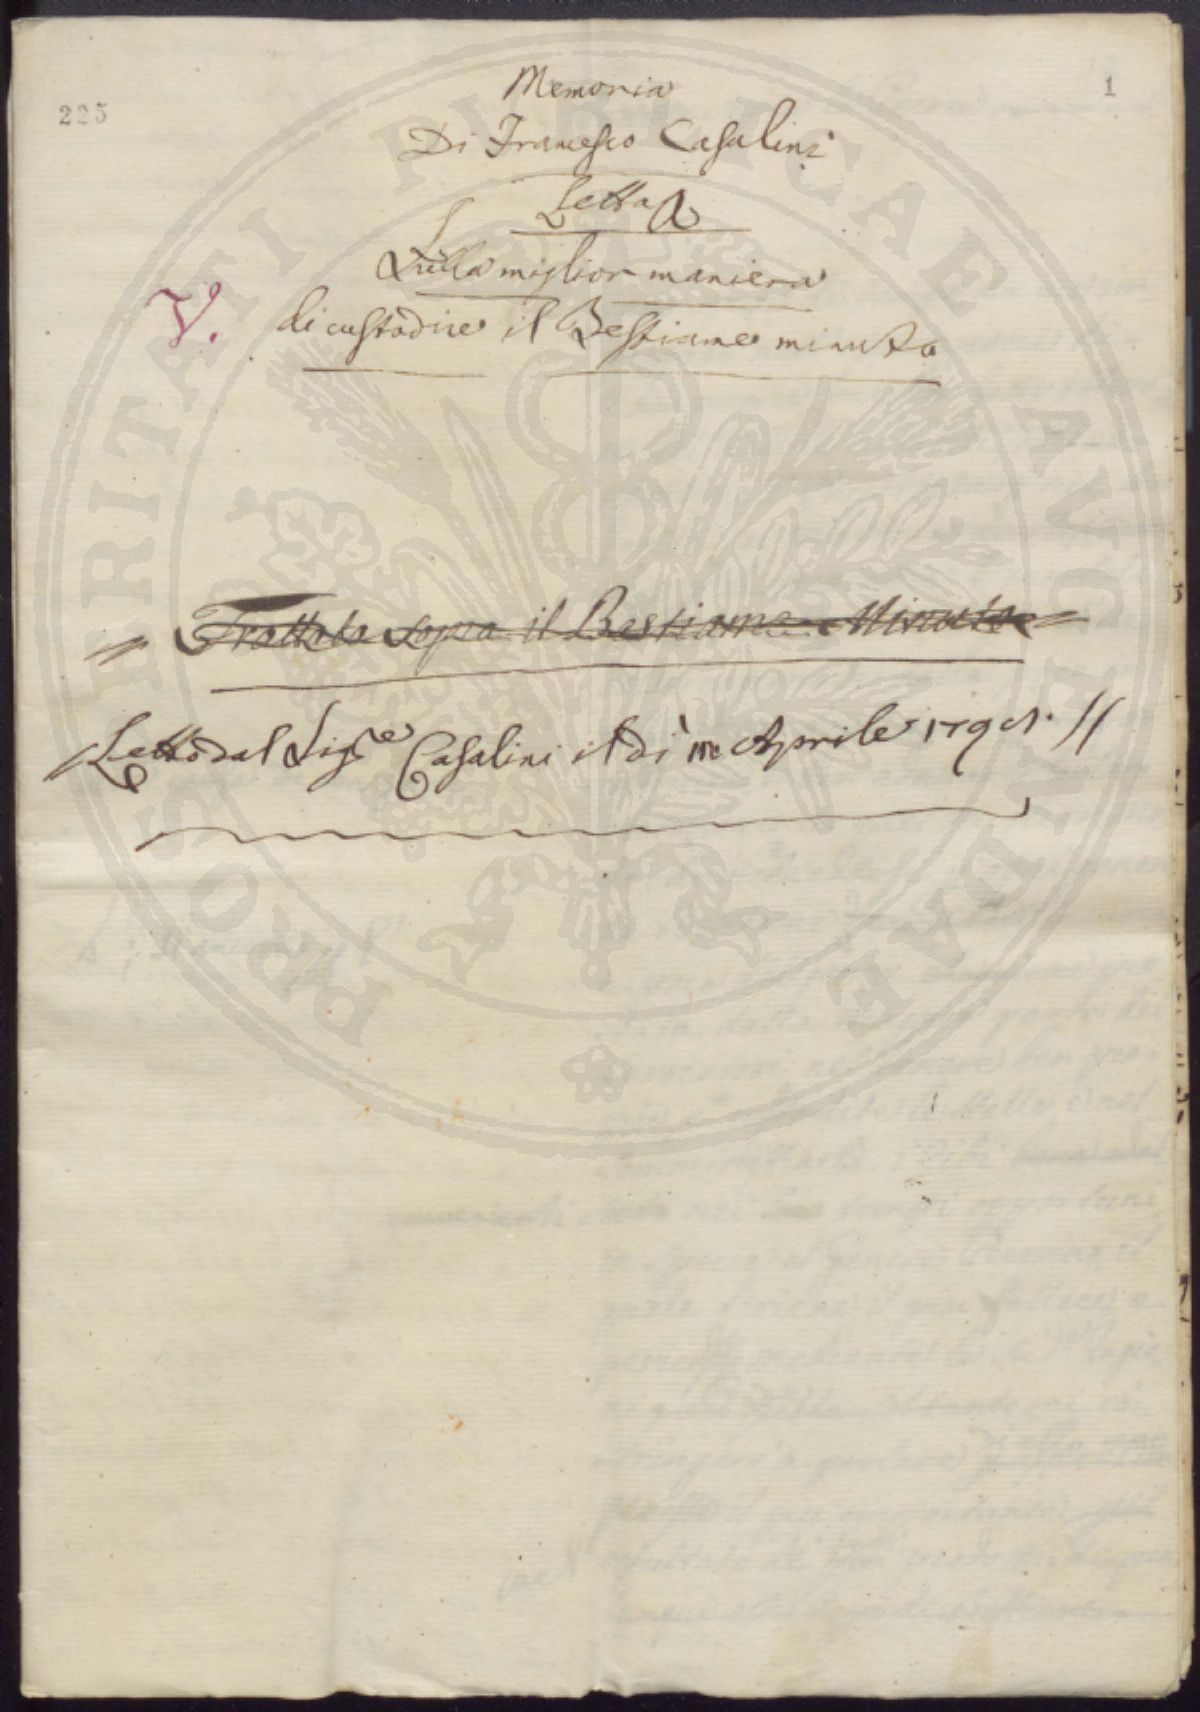 225
1
Memoria
Di Francesco Casalini
Letta
Sulla miglior maniera
V.
di custodire il Bestiame minuto
Trattato sopra il Bestiame Minuto
Letto dal Sig.e Casalini il dì Aprile
PROSPERITATI PUBLICAE AVGENDAE